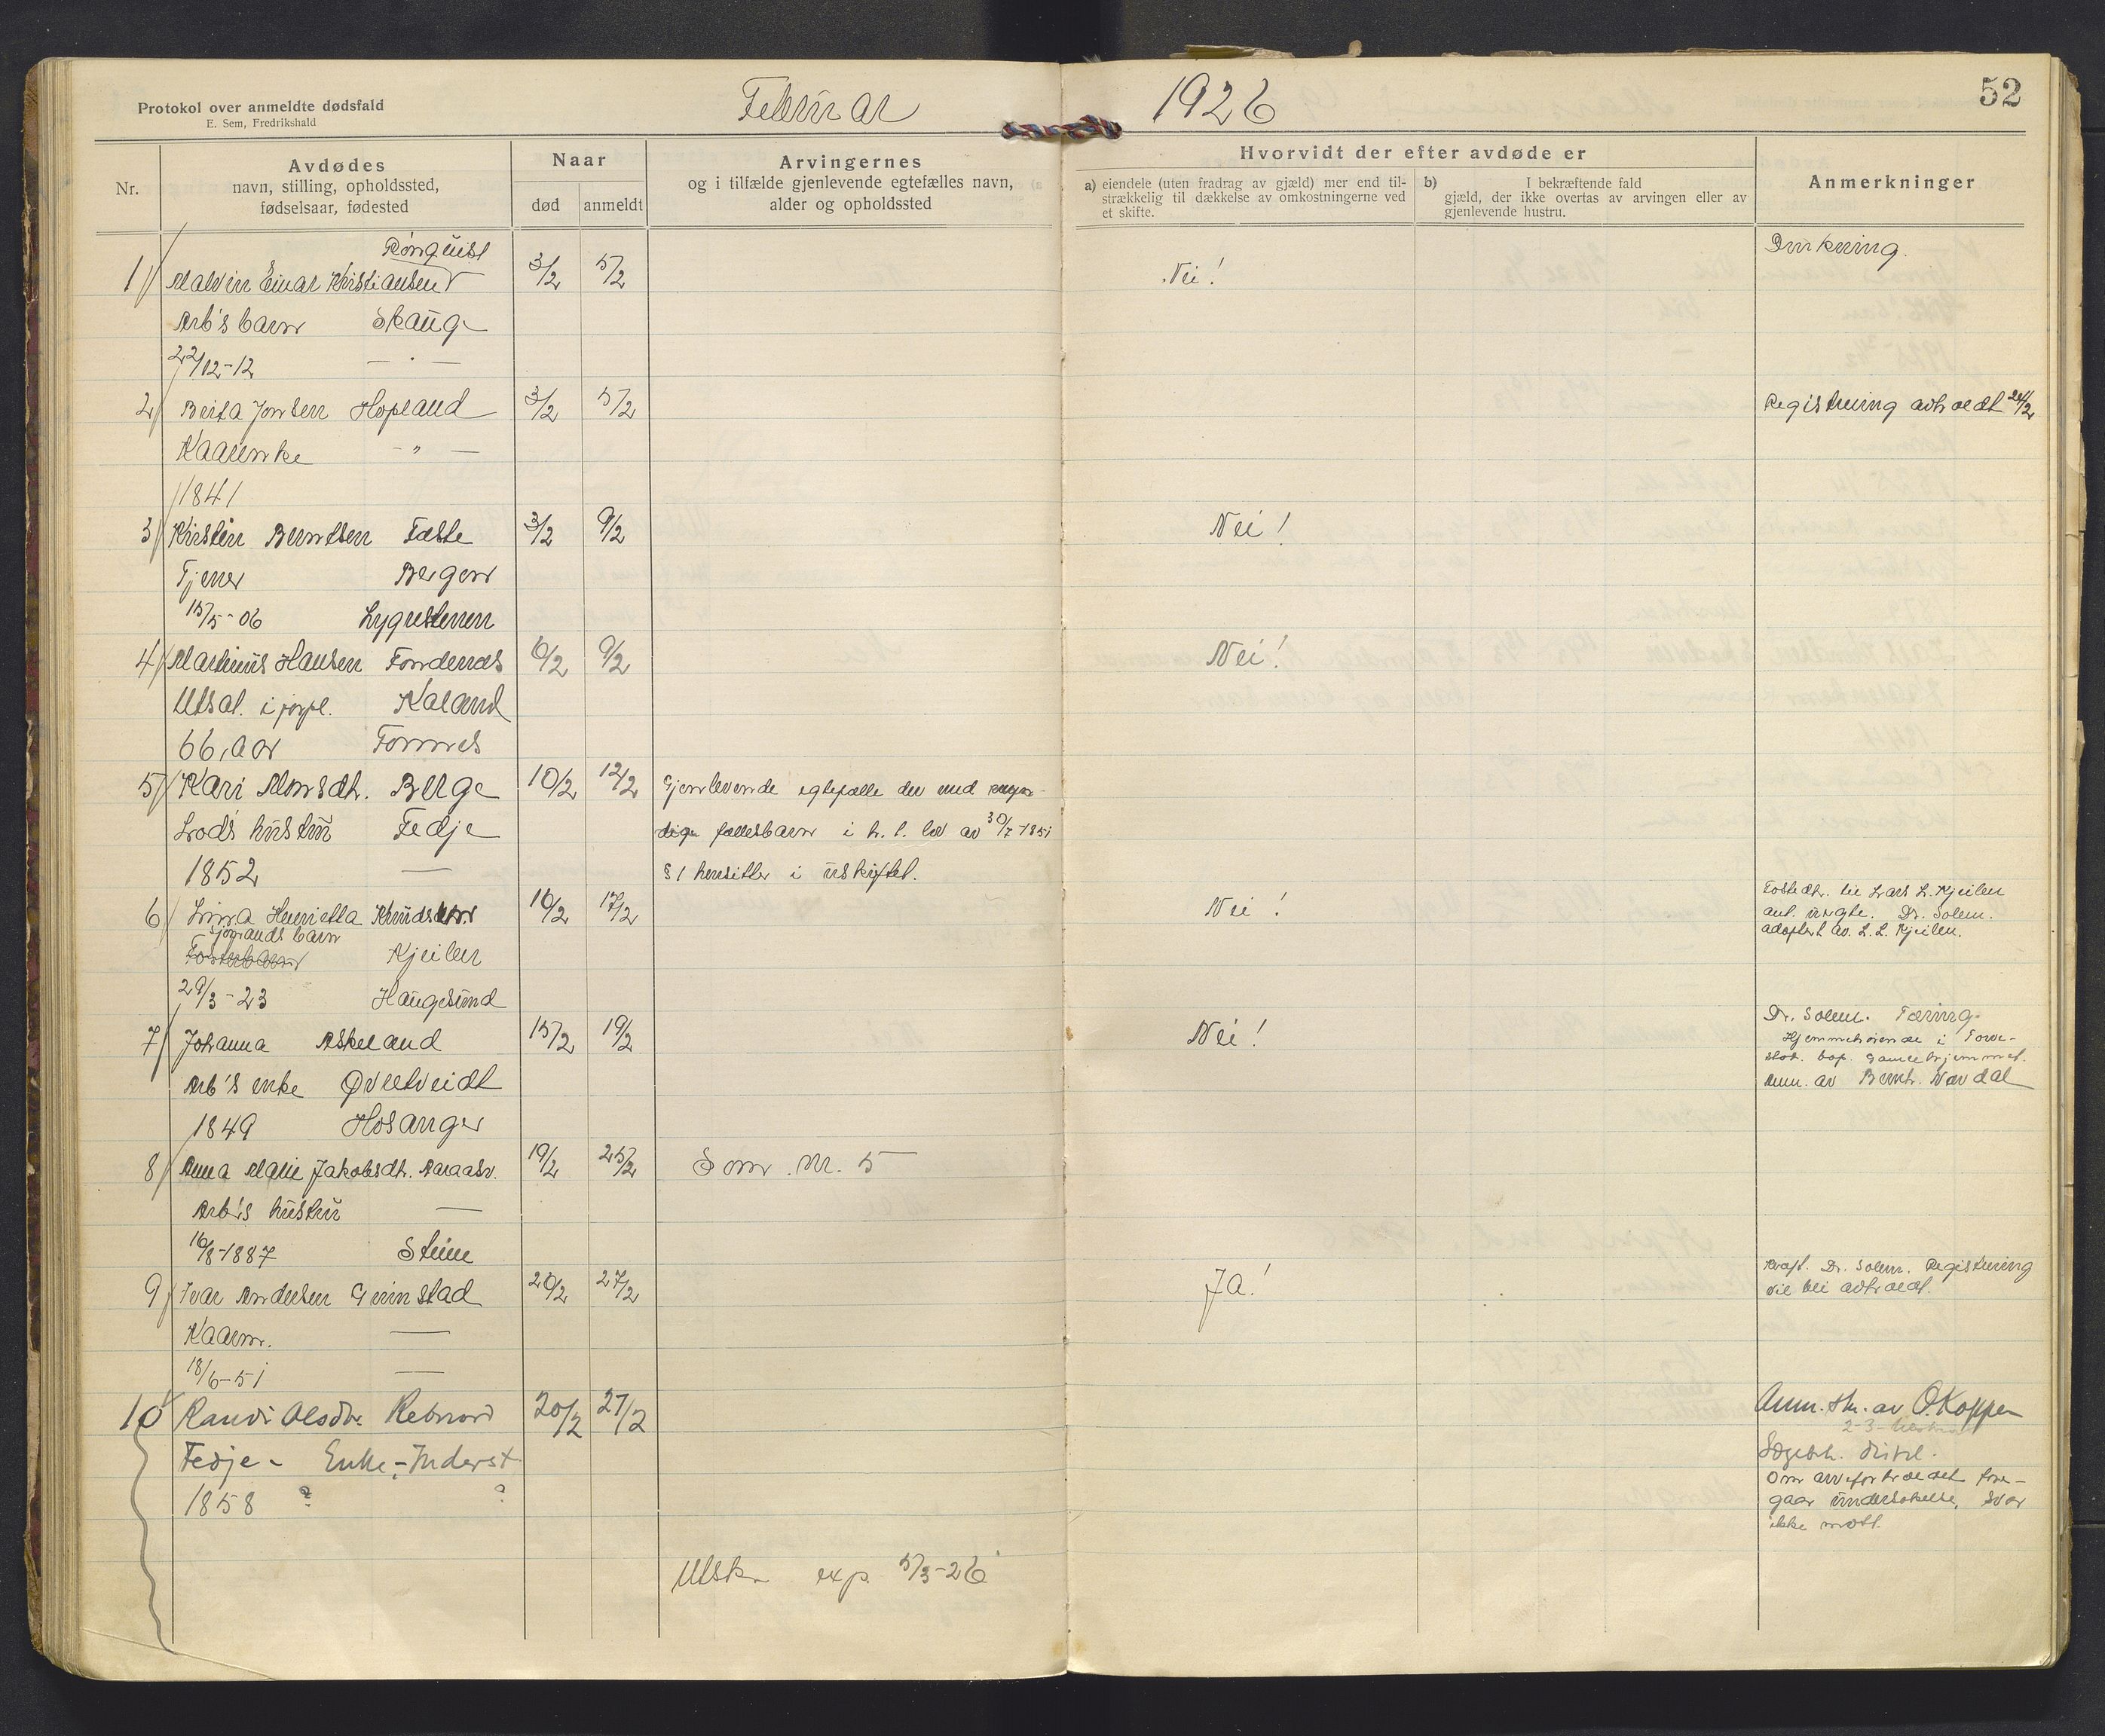 Protokol over anmeldte dødsfald
E. Sem, Fredrikshald
Februar 1926
52
Nr.
Avdødes
navn, stilling, opholdssted,
fødselsaar, fødested
Naar
død anmeldt
Arvingernes
og i tilfælde gjenlevende egtefælles navn,
alder og opholdssted
Hvorvidt der efter avdøde er
a) eiendele (uten fradrag av gjæld) mer end til-
strækkelig til dækkelse av omkostningerne ved
et skifte.
b) I bekræftende fald
gjæld, der ikke overtas av arvingen eller av
gjenlevende hustru.
Anmerkninger
Rönquist
1 Malvin Einar Kristiansen 3/2 5/2 Nei! Drukning.
Arb's barn Skauge
22/12-12 — " —
2 Brita Jonsen Hopland 3/2 5/2 Registrering avholdt 24/2
Kaarenke — " —
1841
3 Kirsten Berntsen Fæste 3/2 9/2 Nei!
Tjener Bergen
15/5-06 Lygrestenen
4 Martinus Hansen Fondenæs 6/2 9/2 Nei!
Utsat i forpl. Kaland
66 aar Fonnes
5 Kari Monsdtr. Berge 10/2 12/2 Gjenlevende egtefælle der med myn-
Lods hustru Fedje dige fællesbarn i h. t. lov av 30/7-1851
1852 — § 1 hensitter i uskiftet.
6 Linna Henrietta Knudsen 16/2 17/2 Nei! Fostedtr. til Lars L. Kjeilen
sjømands barn ant. uægte. Dr. Solem.
Fosterbarn Kjeilen adoptert av L. L. Kjeilen.
29/3-23 Haugesund
7 Johanna Askeland 15/2 19/2 Nei! Dr. Solem. Tæring.
Hjemmehørende i
Arb's enke Øvretveidt
anm. av Bernh. Nævdal
1849 Hosanger
8 Anna Malie Jakobsdtr. 19/2 25/2 Som nr. 5
Arb's hustru —
16/8-1887 Steine
9 Ivar Andersen Grimstad 20/2 27/2 Ja! Kræft. Dr. Solem. Registrering
Kaarm. — vil bli avholdt.
18/6-51 —
10 Randi Olsdtr. Rebnord 20/2 27/2 Anm. skr. av O. Koppen
Fedje - Enke - Inderst
1858 ? ?
Om arveforholdet fore-
gaar undersøkelse, svar
ikke mott.
Utskr. exp. 5/3-26